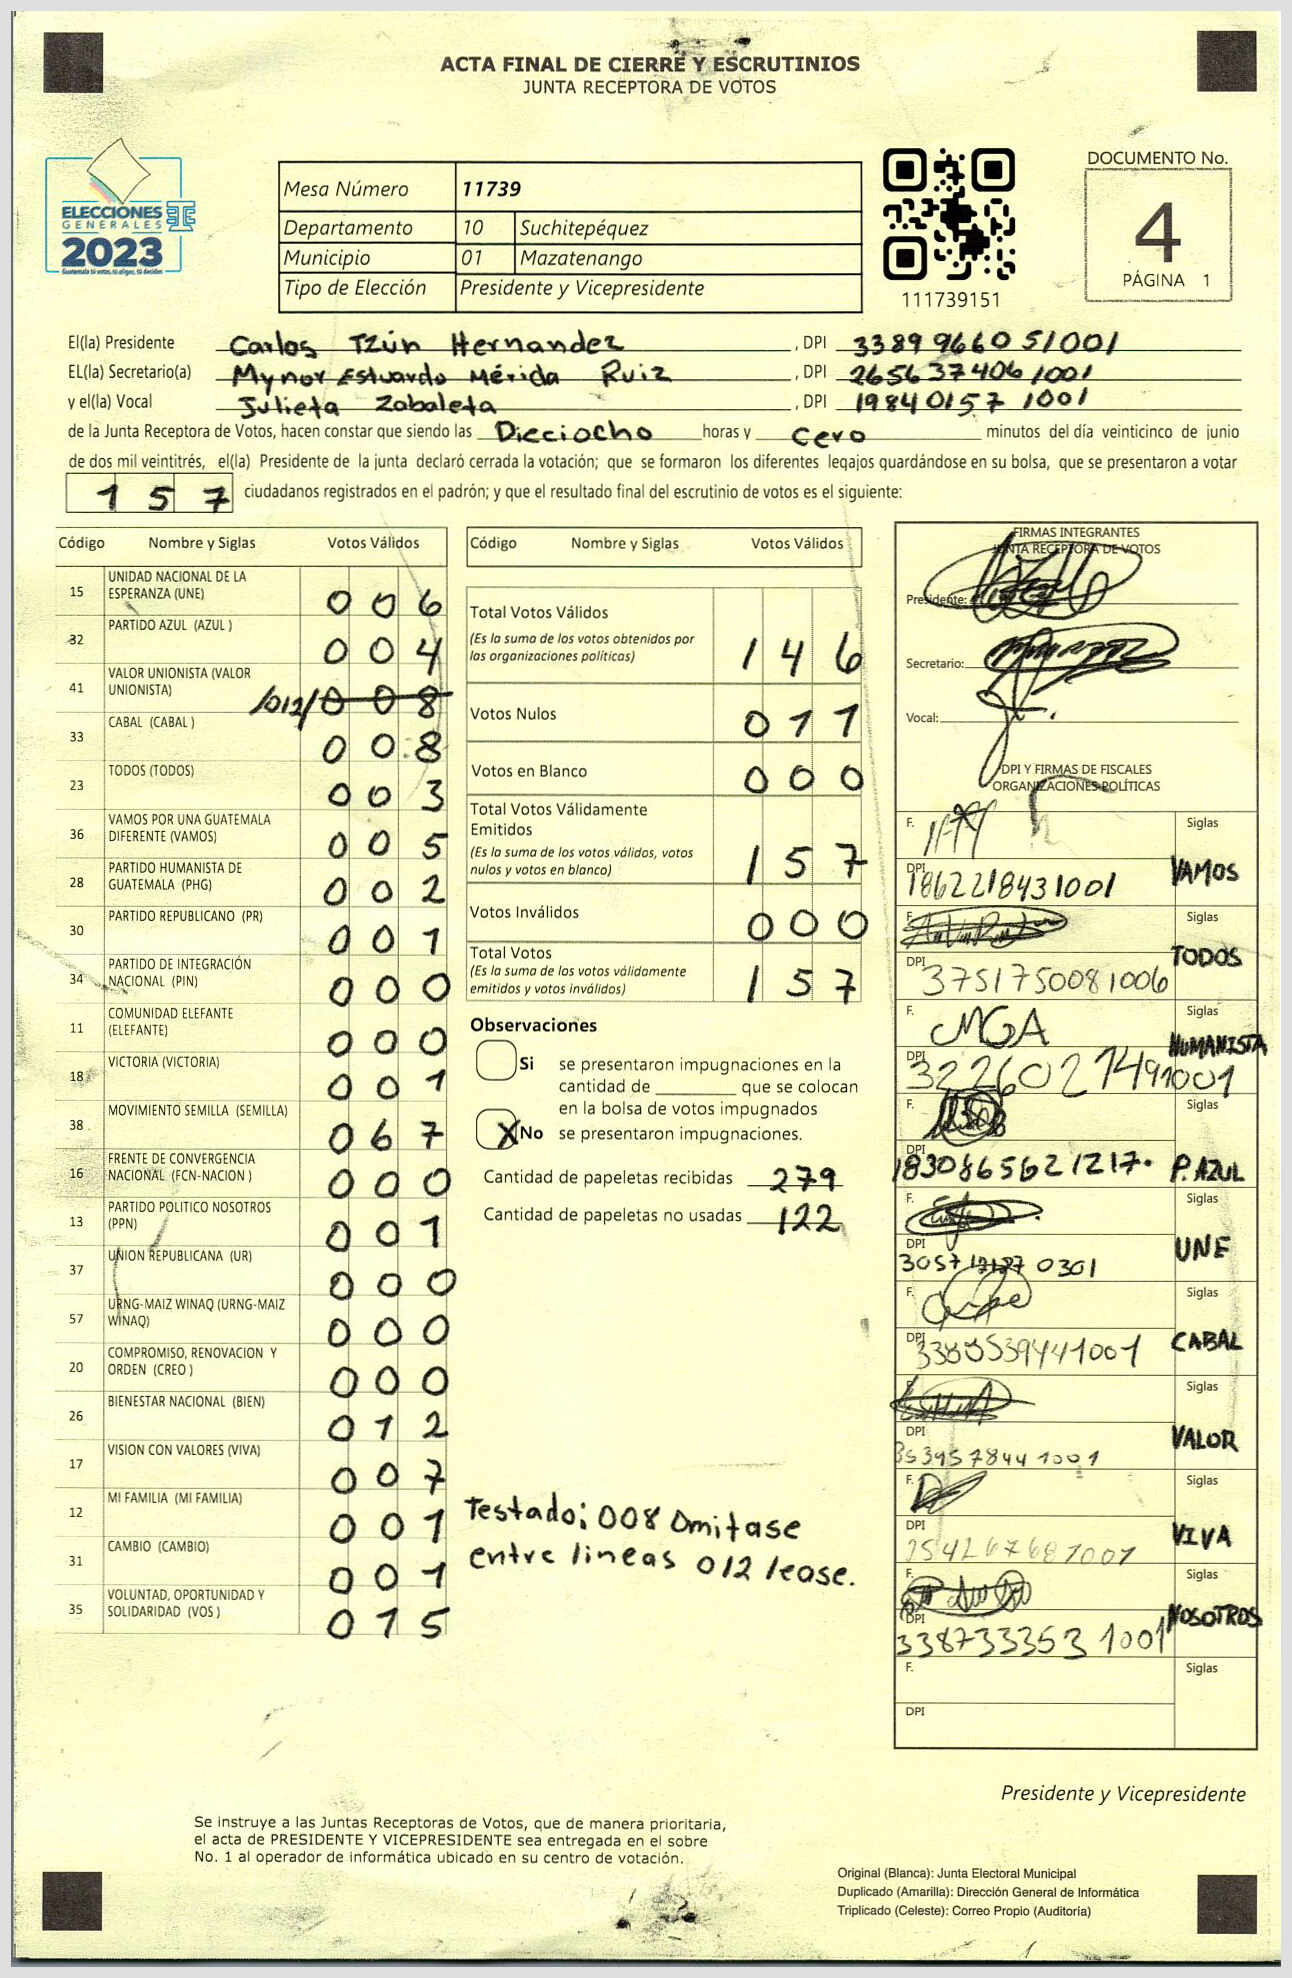 ACTA FINAL DE CIERRE Y ESCRUTINIOS
JUNTA RECEPTORA DE VOTOS
ELECCIONES
GENERALES
2023
Guatemala tú votas, tú eliges, tú decides
Mesa Número 11739
Departamento 10 Suchitepéquez
Municipio 01 Mazatenango
Tipo de Elección Presidente y Vicepresidente
111739151
DOCUMENTO No.
4
PÁGINA 1
El(la) Presidente Carlos Tzún Hernandez, DPI 3389 9660 51001
EL(la) Secretario(a) Mynor Estuardo Mérida Ruiz, DPI 265637406 1001
y el(la) Vocal Julieta Zabaleta, DPI 19840157 1001
de la Junta Receptora de Votos, hacen constar que siendo las Dieciocho horas y Cero minutos del día veinticinco de junio
de dos mil veintitrés, el(la) Presidente de la junta declaró cerrada la votación; que se formaron los diferentes legajos guardándose en su bolsa, que se presentaron a votar
157 ciudadanos registrados en el padrón; y que el resultado final del escrutinio de votos es el siguiente:
Código Nombre y Siglas Votos Válidos
15 UNIDAD NACIONAL DE LA ESPERANZA (UNE) 006
32 PARTIDO AZUL (AZUL ) 004
41 VALOR UNIONISTA (VALOR UNIONISTA) /012/ 008
33 CABAL (CABAL ) 008
23 TODOS (TODOS) 003
36 VAMOS POR UNA GUATEMALA DIFERENTE (VAMOS) 005
28 PARTIDO HUMANISTA DE GUATEMALA (PHG) 002
30 PARTIDO REPUBLICANO (PR) 001
34 PARTIDO DE INTEGRACIÓN NACIONAL (PIN) 000
11 COMUNIDAD ELEFANTE (ELEFANTE) 000
18 VICTORIA (VICTORIA) 001
38 MOVIMIENTO SEMILLA (SEMILLA) 067
16 FRENTE DE CONVERGENCIA NACIONAL (FCN-NACION ) 000
13 PARTIDO POLITICO NOSOTROS (PPN) 001
37 UNION REPUBLICANA (UR) 000
57 URNG-MAIZ WINAQ (URNG-MAIZ WINAQ) 000
20 COMPROMISO, RENOVACION Y ORDEN (CREO ) 000
26 BIENESTAR NACIONAL (BIEN) 012
17 VISION CON VALORES (VIVA) 007
12 MI FAMILIA (MI FAMILIA) 001
31 CAMBIO (CAMBIO) 001
35 VOLUNTAD, OPORTUNIDAD Y SOLIDARIDAD (VOS ) 015
Código Nombre y Siglas Votos Válidos
Total Votos Válidos 146
(Es la suma de los votos obtenidos por
las organizaciones políticas)
Votos Nulos 011
Votos en Blanco 000
Total Votos Válidamente
Emitidos 157
(Es la suma de los votos válidos, votos
nulos y votos en blanco)
Votos Inválidos 000
Total Votos 157
(Es la suma de los votos válidamente
emitidos y votos inválidos)
Observaciones
Si se presentaron impugnaciones en la
cantidad de ________ que se colocan
en la bolsa de votos impugnados
X No se presentaron impugnaciones.
Cantidad de papeletas recibidas 279
Cantidad de papeletas no usadas 122
Testado; 008 Omitase
entre lineas 012 lease.
FIRMAS INTEGRANTES
JUNTA RECEPTORA DE VOTOS
Presidente:
Secretario:
Vocal:
DPI Y FIRMAS DE FISCALES
ORGANIZACIONES POLÍTICAS
F. Siglas
DPI 1862218431001 VAMOS
F. Siglas
DPI 3751750081006 TODOS
F. MGA Siglas
DPI 3226027491001 HUMANISTA
F. Siglas
DPI 1830865621217. P. AZUL
F. Siglas
DPI 0301 UNE
F. Siglas
DPI CABAL
F. Siglas
DPI VALOR
F. Siglas
DPI VIVA
F. Siglas
DPI 338733353 1001 NOSOTROS
F. Siglas
DPI
Presidente y Vicepresidente
Se instruye a las Juntas Receptoras de Votos, que de manera prioritaria,
el acta de PRESIDENTE Y VICEPRESIDENTE sea entregada en el sobre
No. 1 al operador de informática ubicado en su centro de votación.
Original (Blanca): Junta Electoral Municipal
Duplicado (Amarilla): Dirección General de Informática
Triplicado (Celeste): Correo Propio (Auditoría)